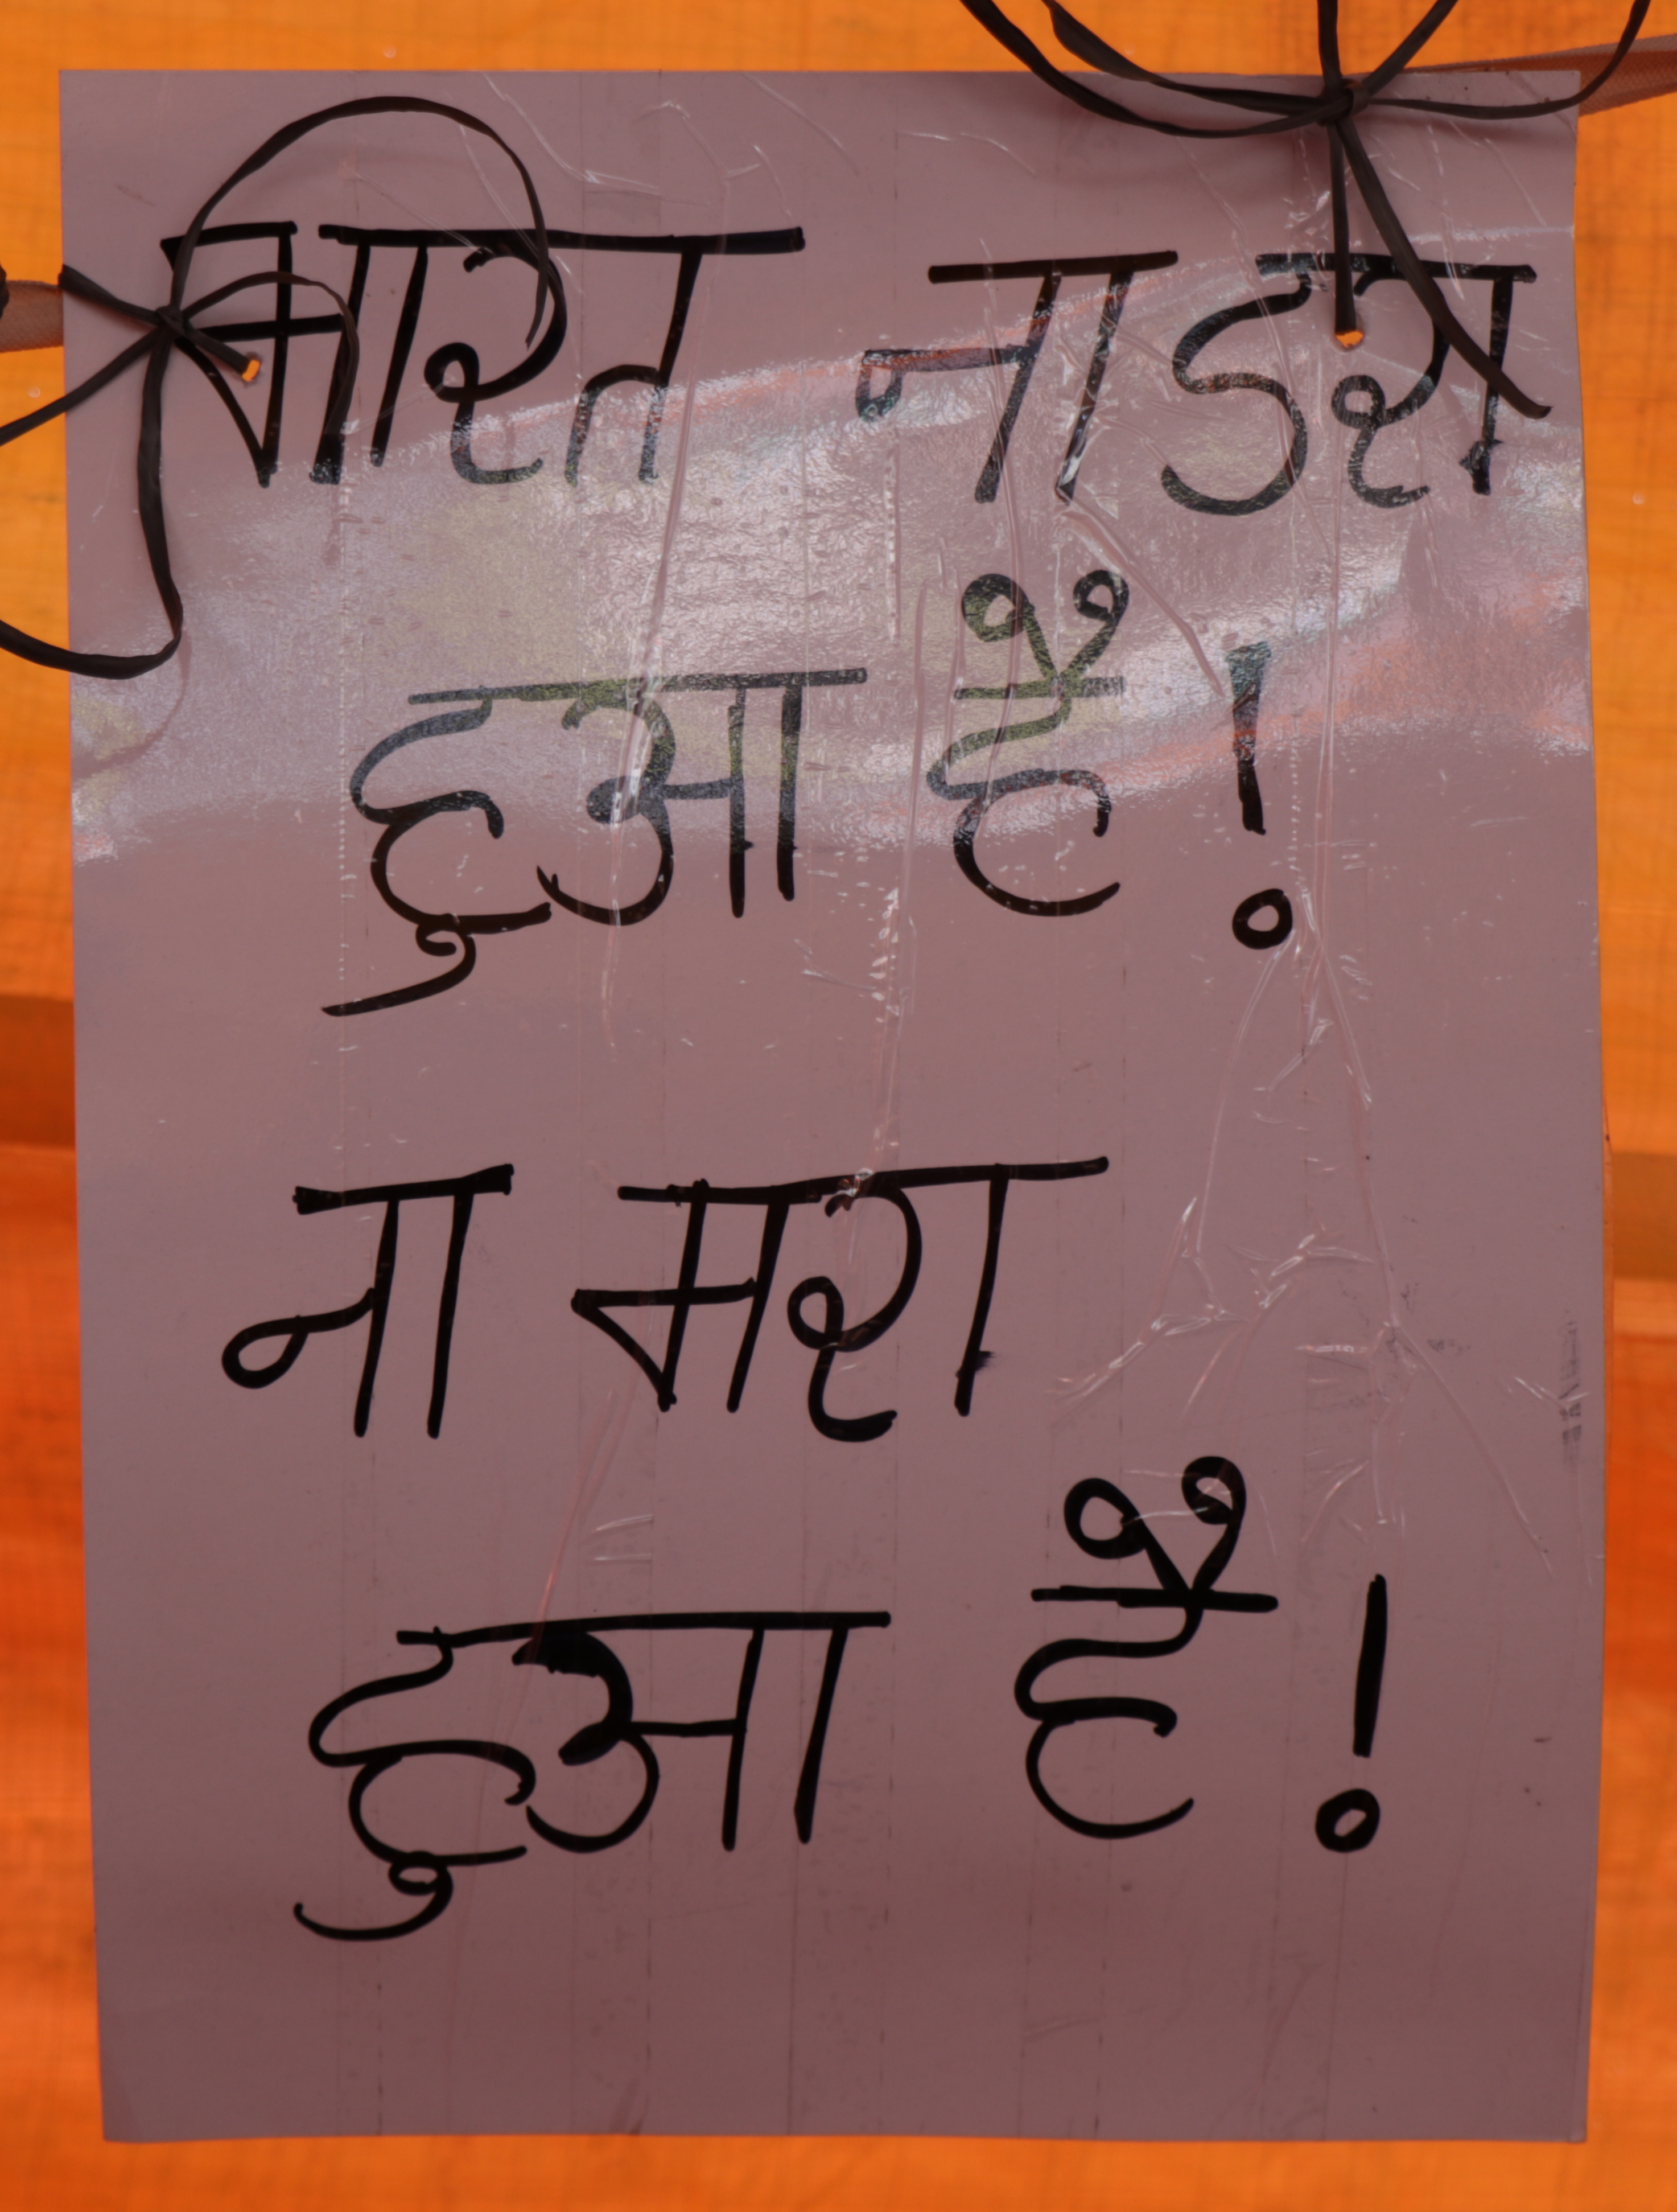 भारत ना डरा
हुआ है!
ना मरा
हुआ है!